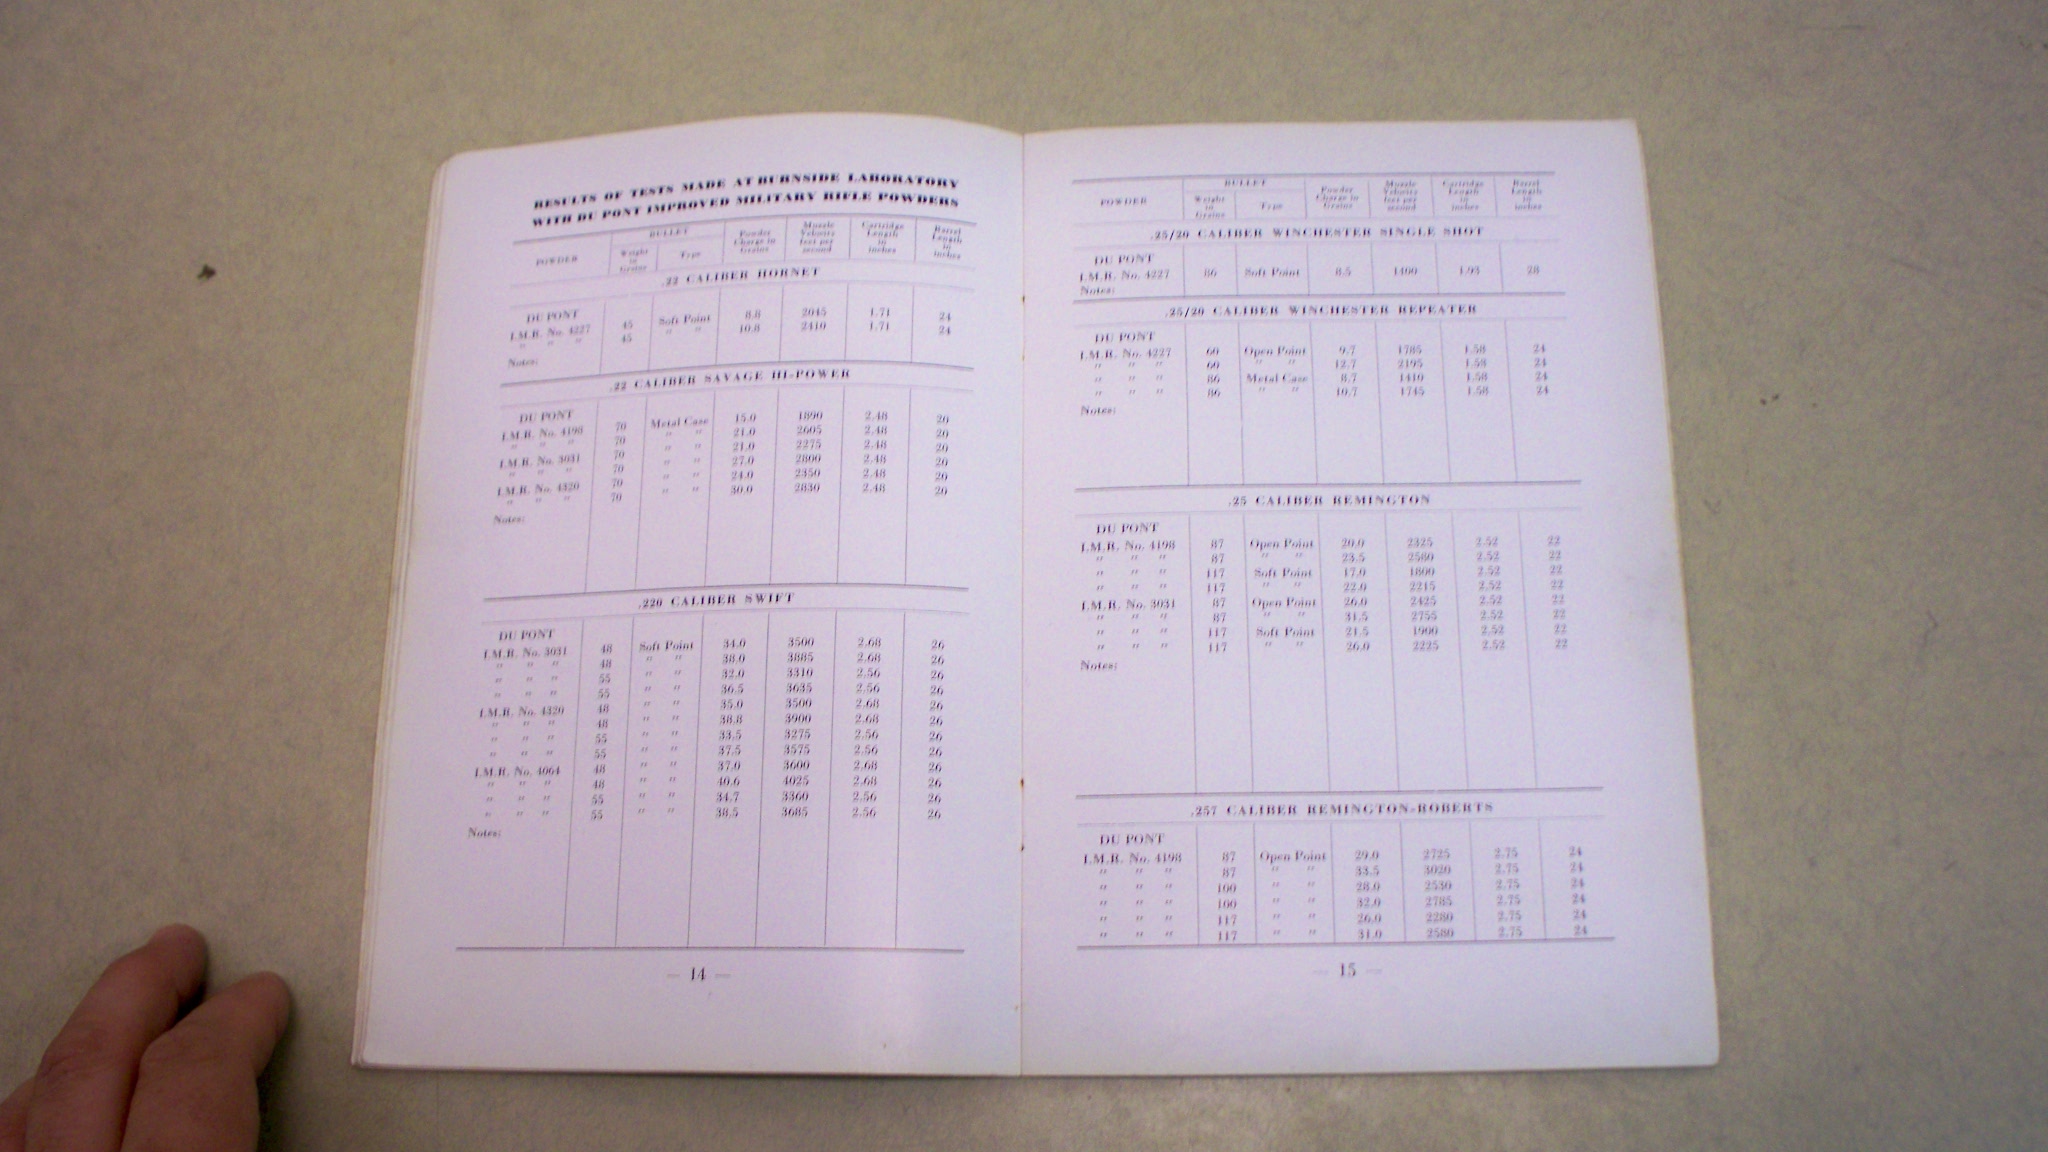 RESULTS OF TESTS MADE AT BURNSIDE LABORATORY
WITH DU PONT IMPROVED MILITARY RIFLE POWDERS
POWDER BULLET Weight in Grains Type Powder Charge in Grains Muzzle Velocity feet per second Cartridge Length in inches Barrel Length in inches
.22 CALIBER HORNET
DU PONT
I.M.R. No. 4227 45 Soft Point 8.8 2045 1.71 24
" " " 45 " " 10.8 2410 1.71 24
Notes:
.22 CALIBER SAVAGE HI-POWER
DU PONT
I.M.R. No. 4198 70 Metal Case 15.0 1890 2.48 20
" " " 70 " " 21.0 2605 2.48 20
I.M.R. No. 3031 70 " " 21.0 2275 2.48 20
" " " 70 " " 27.0 2800 2.48 20
I.M.R. No. 4320 70 " " 24.0 2350 2.48 20
" " " 70 " " 30.0 2830 2.48 20
Notes:
.220 CALIBER SWIFT
DU PONT
I.M.R. No. 3031 48 Soft Point 34.0 3500 2.68 26
" " " 48 " " 38.0 3885 2.68 26
" " " 55 " " 32.0 3310 2.56 26
" " " 55 " " 36.5 3635 2.56 26
I.M.R. No. 4320 48 " " 35.0 3500 2.68 26
" " " 48 " " 38.8 3900 2.68 26
" " " 55 " " 33.5 3275 2.56 26
" " " 55 " " 37.5 3575 2.56 26
I.M.R. No. 4064 48 " " 37.0 3600 2.68 26
" " " 48 " " 40.6 4025 2.68 26
" " " 55 " " 34.7 3360 2.56 26
" " " 55 " " 38.5 3685 2.56 26
Notes:
— 14 —
POWDER BULLET Weight in Grains Type Powder Charge in Grains Muzzle Velocity feet per second Cartridge Length in inches Barrel Length in inches
.25/20 CALIBER WINCHESTER SINGLE SHOT
DU PONT
I.M.R. No. 4227 86 Soft Point 8.5 1400 1.93 28
Notes:
.25/20 CALIBER WINCHESTER REPEATER
DU PONT
I.M.R. No. 4227 60 Open Point 9.7 1785 1.58 24
" " " 60 " " 12.7 2195 1.58 24
" " " 86 Metal Case 8.7 1410 1.58 24
" " " 86 " " 10.7 1745 1.58 24
Notes:
.25 CALIBER REMINGTON
DU PONT
I.M.R. No. 4198 87 Open Point 20.0 2325 2.52 22
" " " 87 " " 23.5 2560 2.52 22
" " " 117 Soft Point 17.0 1800 2.52 22
" " " 117 " " 22.0 2215 2.52 22
I.M.R. No. 3031 87 Open Point 26.0 2425 2.52 22
" " " 87 " " 31.5 2755 2.52 22
" " " 117 Soft Point 21.5 1900 2.52 22
" " " 117 " " 26.0 2225 2.52 22
Notes:
.257 CALIBER REMINGTON-ROBERTS
DU PONT
I.M.R. No. 4198 87 Open Point 29.0 2725 2.75 24
" " " 87 " " 33.5 3020 2.75 24
" " " 100 " " 28.0 2530 2.75 24
" " " 100 " " 32.0 2785 2.75 24
" " " 117 " " 26.0 2280 2.75 24
" " " 117 " " 31.0 2580 2.75 24
— 15 —